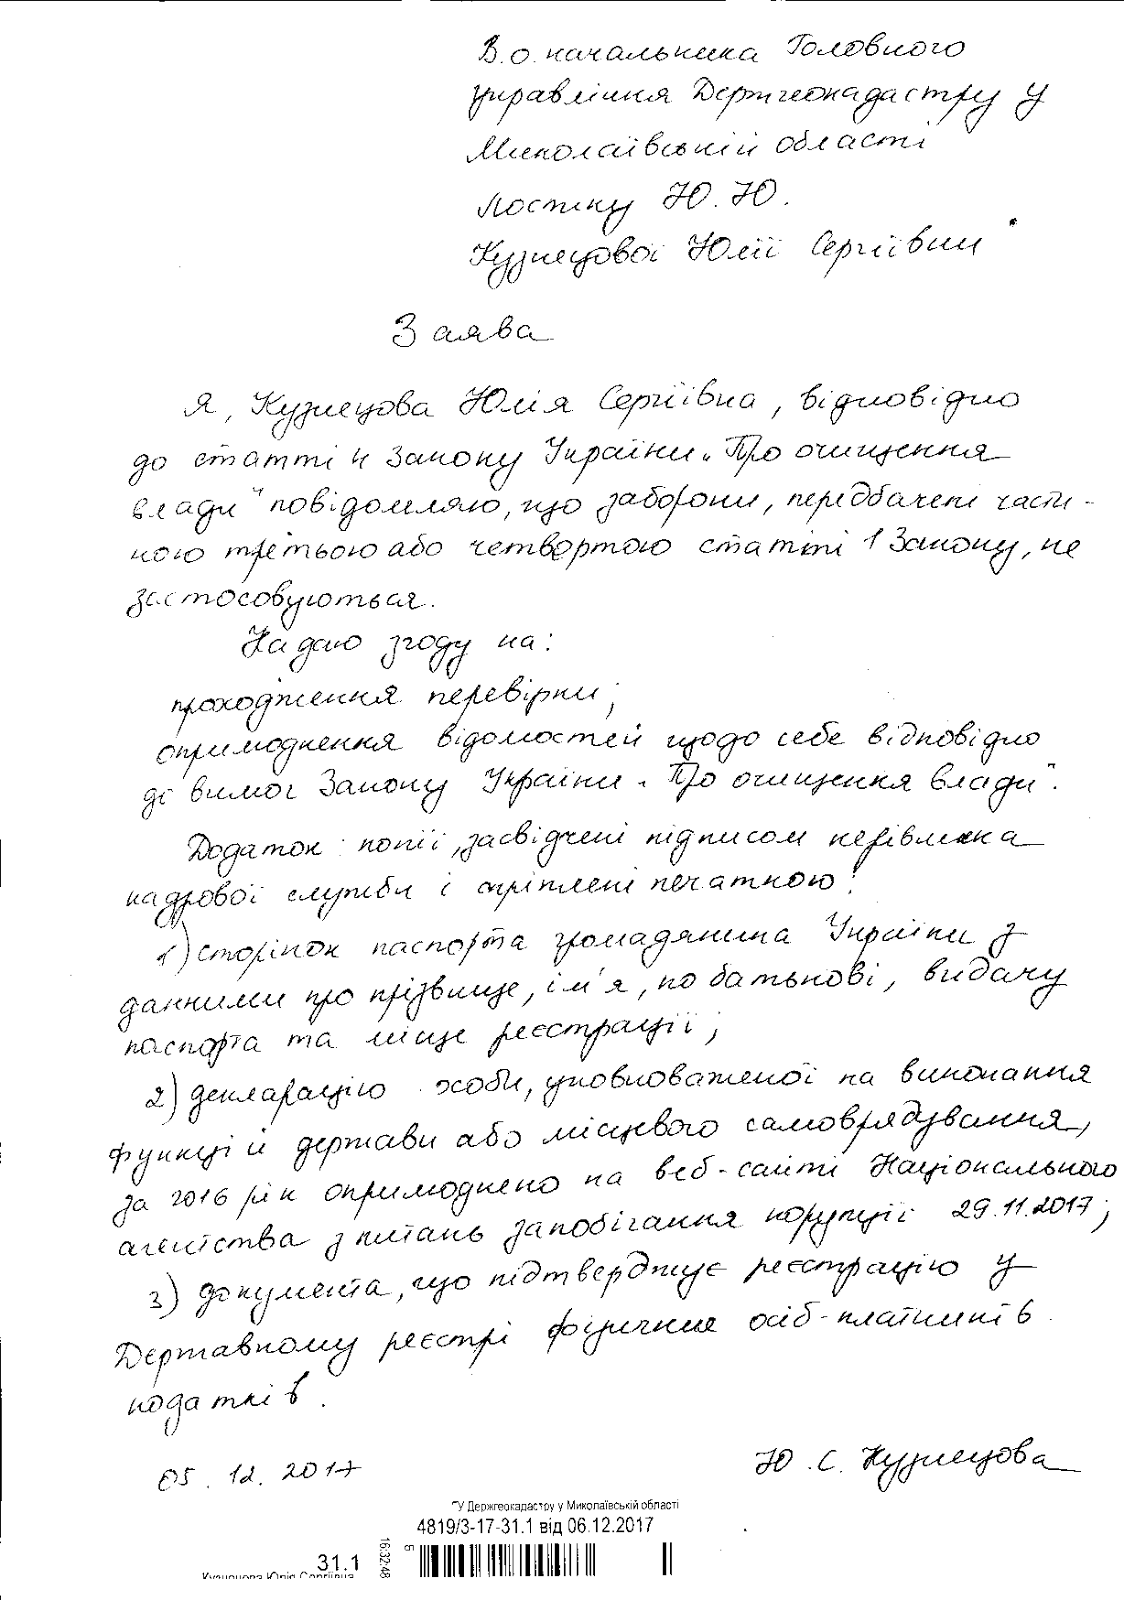 В.о. начальника Головного
управління Держгеокадастру у
Миколаївській області
Лостіку Ю.Ю.
Кузнецової Юлії Сергіївни
Заява
Я, Кузнецова Юлія Сергіївна, відповідно
до статті 4 Закону України „Про очищення
влади" повідомляю, що заборони, передбачені части-
ною третьою або четвертою статті 1 Закону, не
застосовуються.
Надаю згоду на:
проходження перевірки;
оприлюднення відомостей щодо себе відповідно
до вимог Закону України „Про очищення влади".
Додаток: копії, засвідчені підписом керівника
кадрової служби і скріплені печаткою:
1) сторінок паспорта громадянина України з
данними про прізвище, ім'я, по батькові, видачу
паспорта та місце реєстрації;
2) декларацію особи, уповноваженої на виконання
функцій держави або місцевого самоврядування,
за 2016 рік оприлюднено на веб-сайті Національного
агентства з питань запобігання корупції 29.11.2017;
3) документа, що підтверджує реєстрацію у
Державному реєстрі фізичних осіб-платників
податків.
05.12.2017 Ю.С. Кузнецова
ГУ Держгеокадастру у Миколаївській області
4819/3-17-31.1 від 06.12.2017
16:32:48
31.1
Кузнецова Юлія Сергіївна